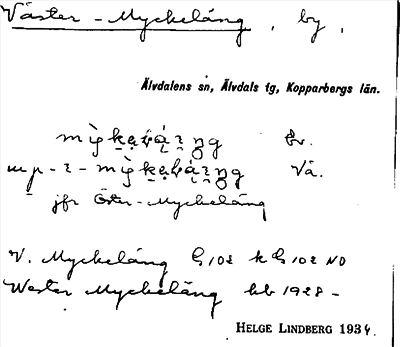 Väster-Myckeläng, by,
Älvdalens sn, Älvdals tg, Kopparbergs län.
Vå.
jfr Öster-Myckeläng
V. Myckeläng G102 k G 102 NO
Wester Myckeläng bb 1928-
HELGE LINDBERG 1934.